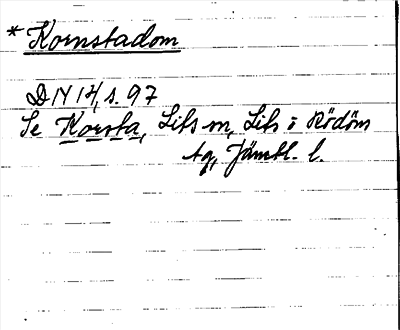 * Kornstadom
DN 14, s. 97
Se Korsta, Lits sn, Lits o Rödöns
tg, Jämtl. l.